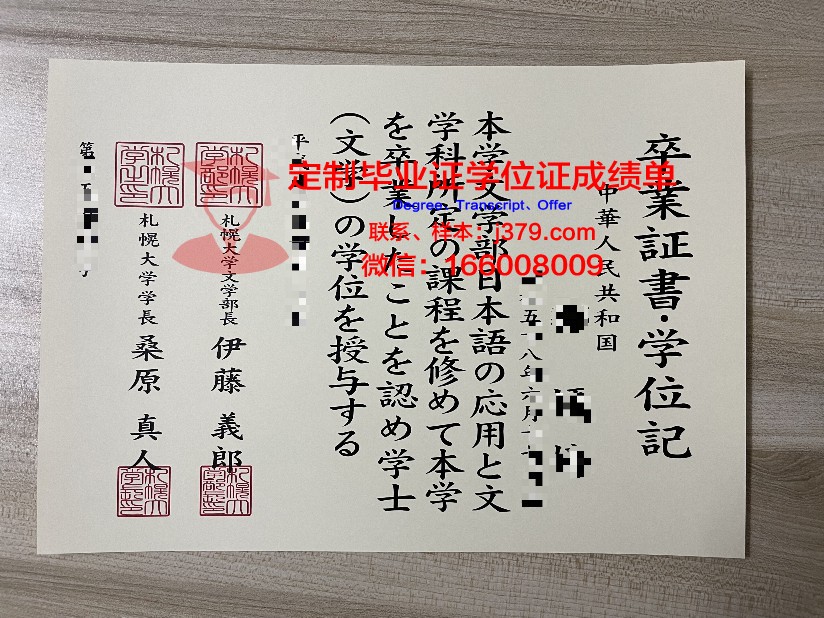 卒業証書・学位記
中華人民共和国
五 八年六月十
本学文学部日本語の応用と文
学科所定の課程を修めて本学
を卒業したことを認め学士
(文学)の学位を授与する
札幌大学文学部長 伊藤 義郎
札幌大学学長 桑原 真人
第
定制毕业证学位证成绩单
Degree、Transcript、Offer
联系、样本:j379.com
微信:166008009